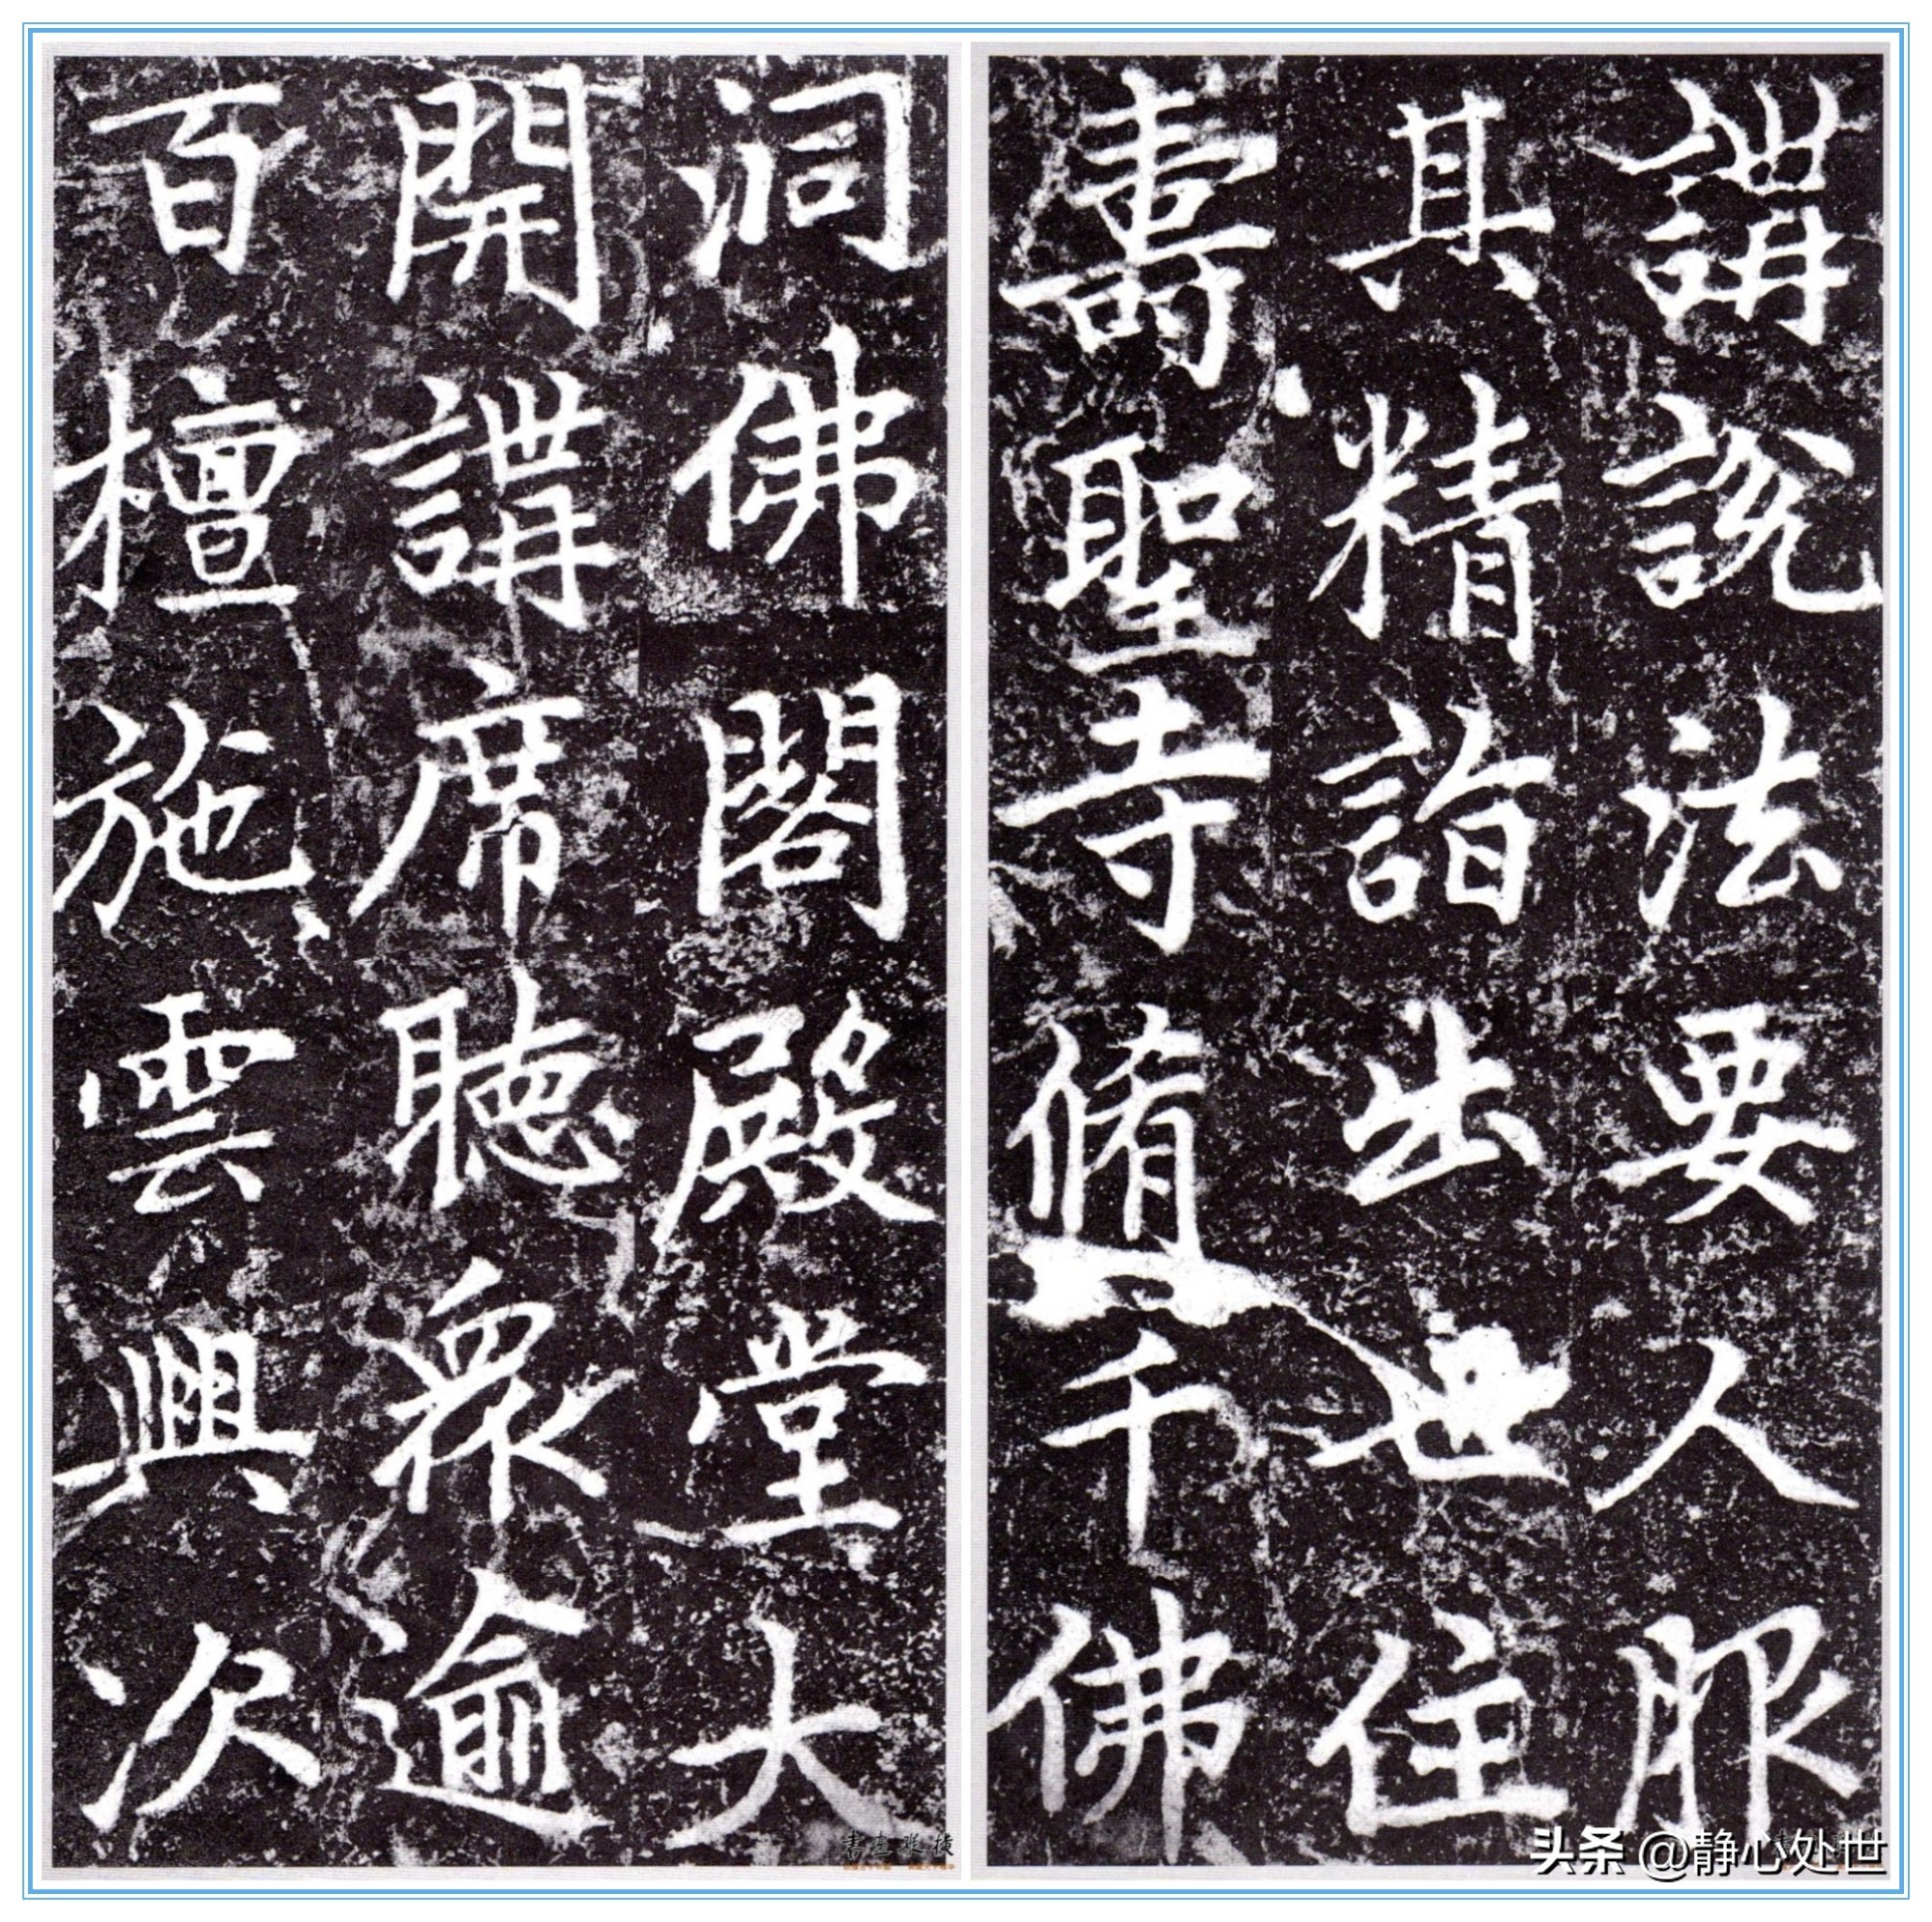 講說法要人服
其精詣出世住
壽聖寺脩千佛
洞佛閣殿堂大
開講席聽衆逾
百檀施雲興次
書畫縱橫
头条 @静心处世